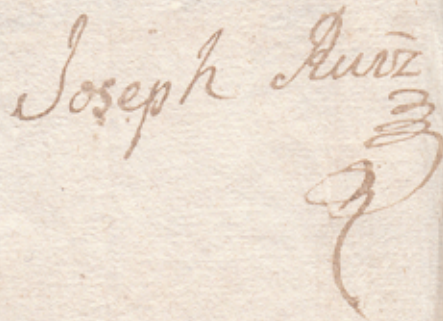 Joseph Ruiz